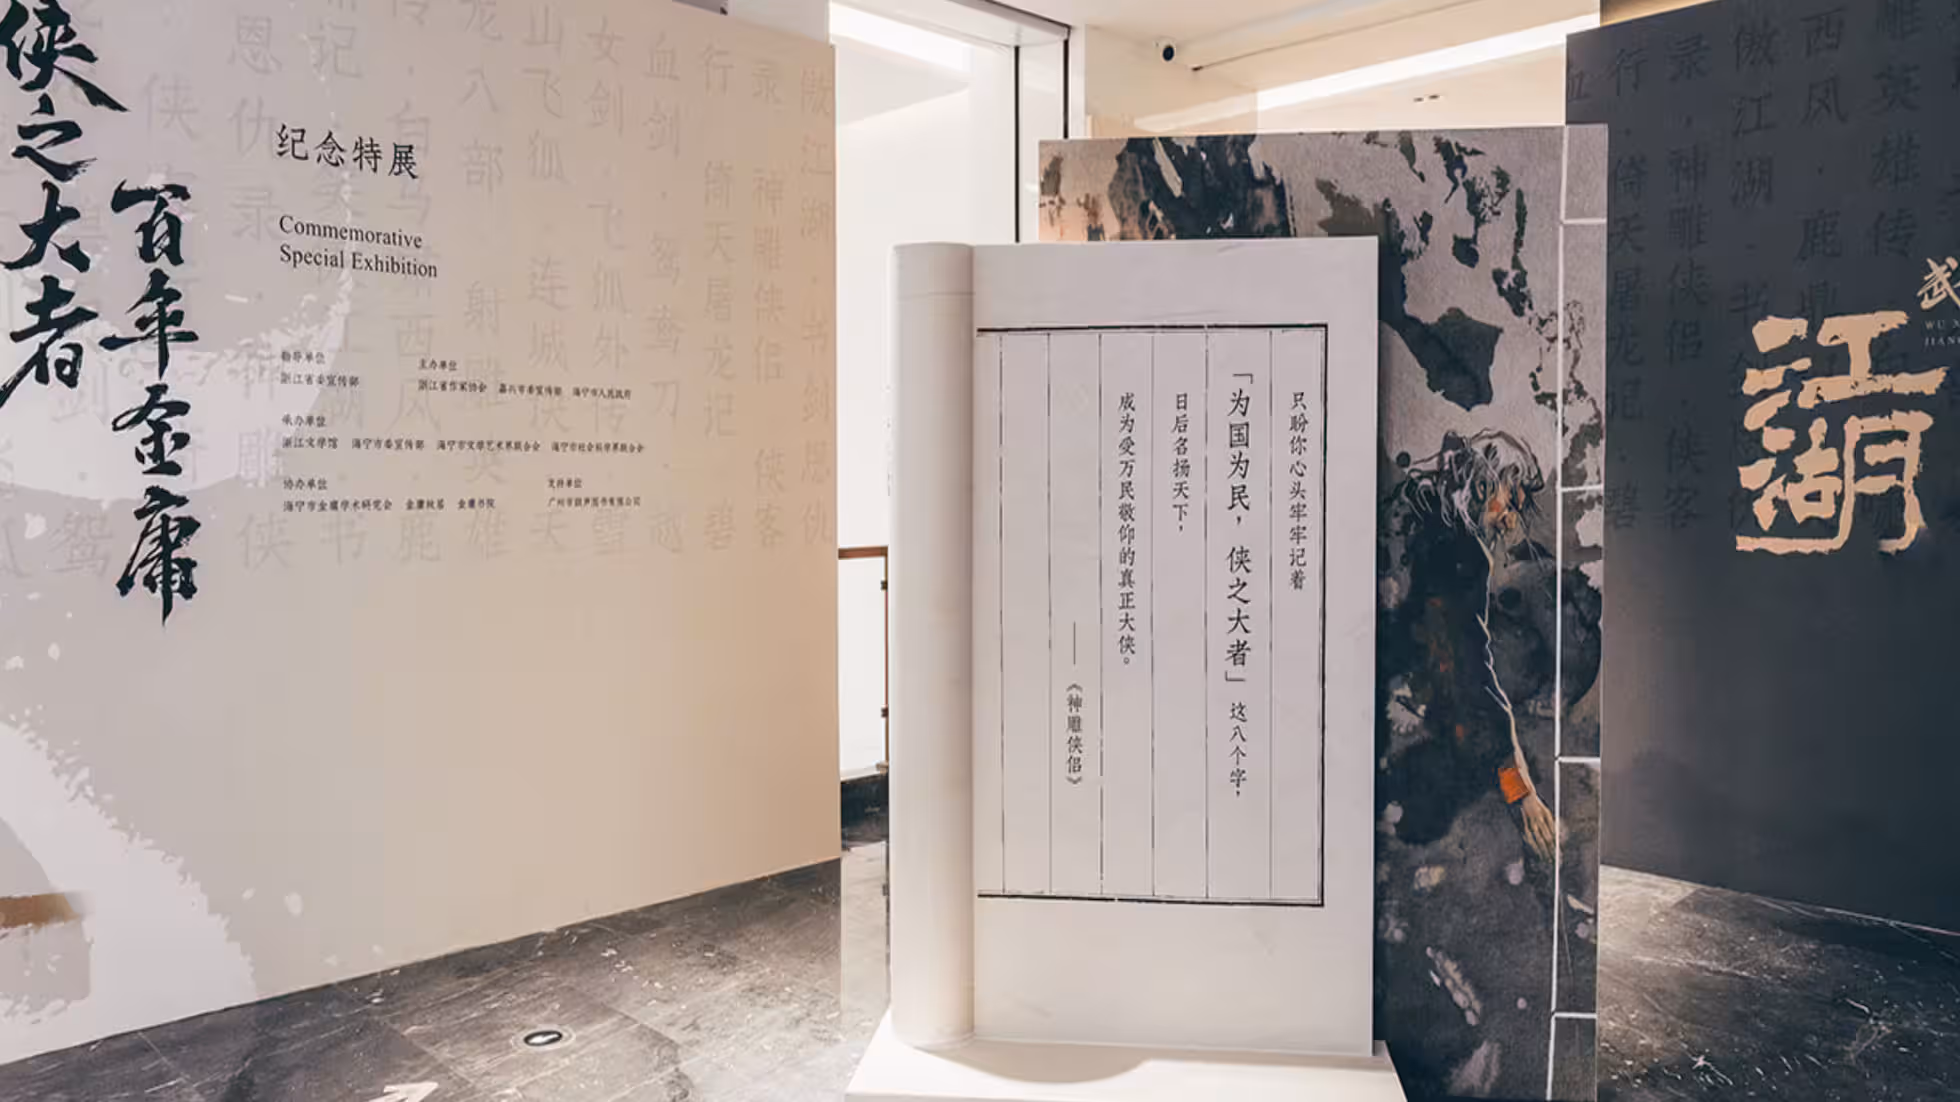 侠之大者
百年金庸
纪念特展
Commemorative
Special Exhibition
指导单位
浙江省委宣传部
主办单位
浙江省作家协会 嘉兴市委宣传部 海宁市人民政府
承办单位
浙江文学馆 海宁市委宣传部 海宁市文学艺术界联合会 海宁市社会科学界联合会
协办单位
海宁市金庸学术研究会 金庸故居 金庸书院
支持单位
只盼你心头牢牢记着
「为国为民，侠之大者」这八个字，
日后名扬天下，
成为受万民敬仰的真正大侠。
——《神雕侠侣》
武
WU
JIANG
江湖